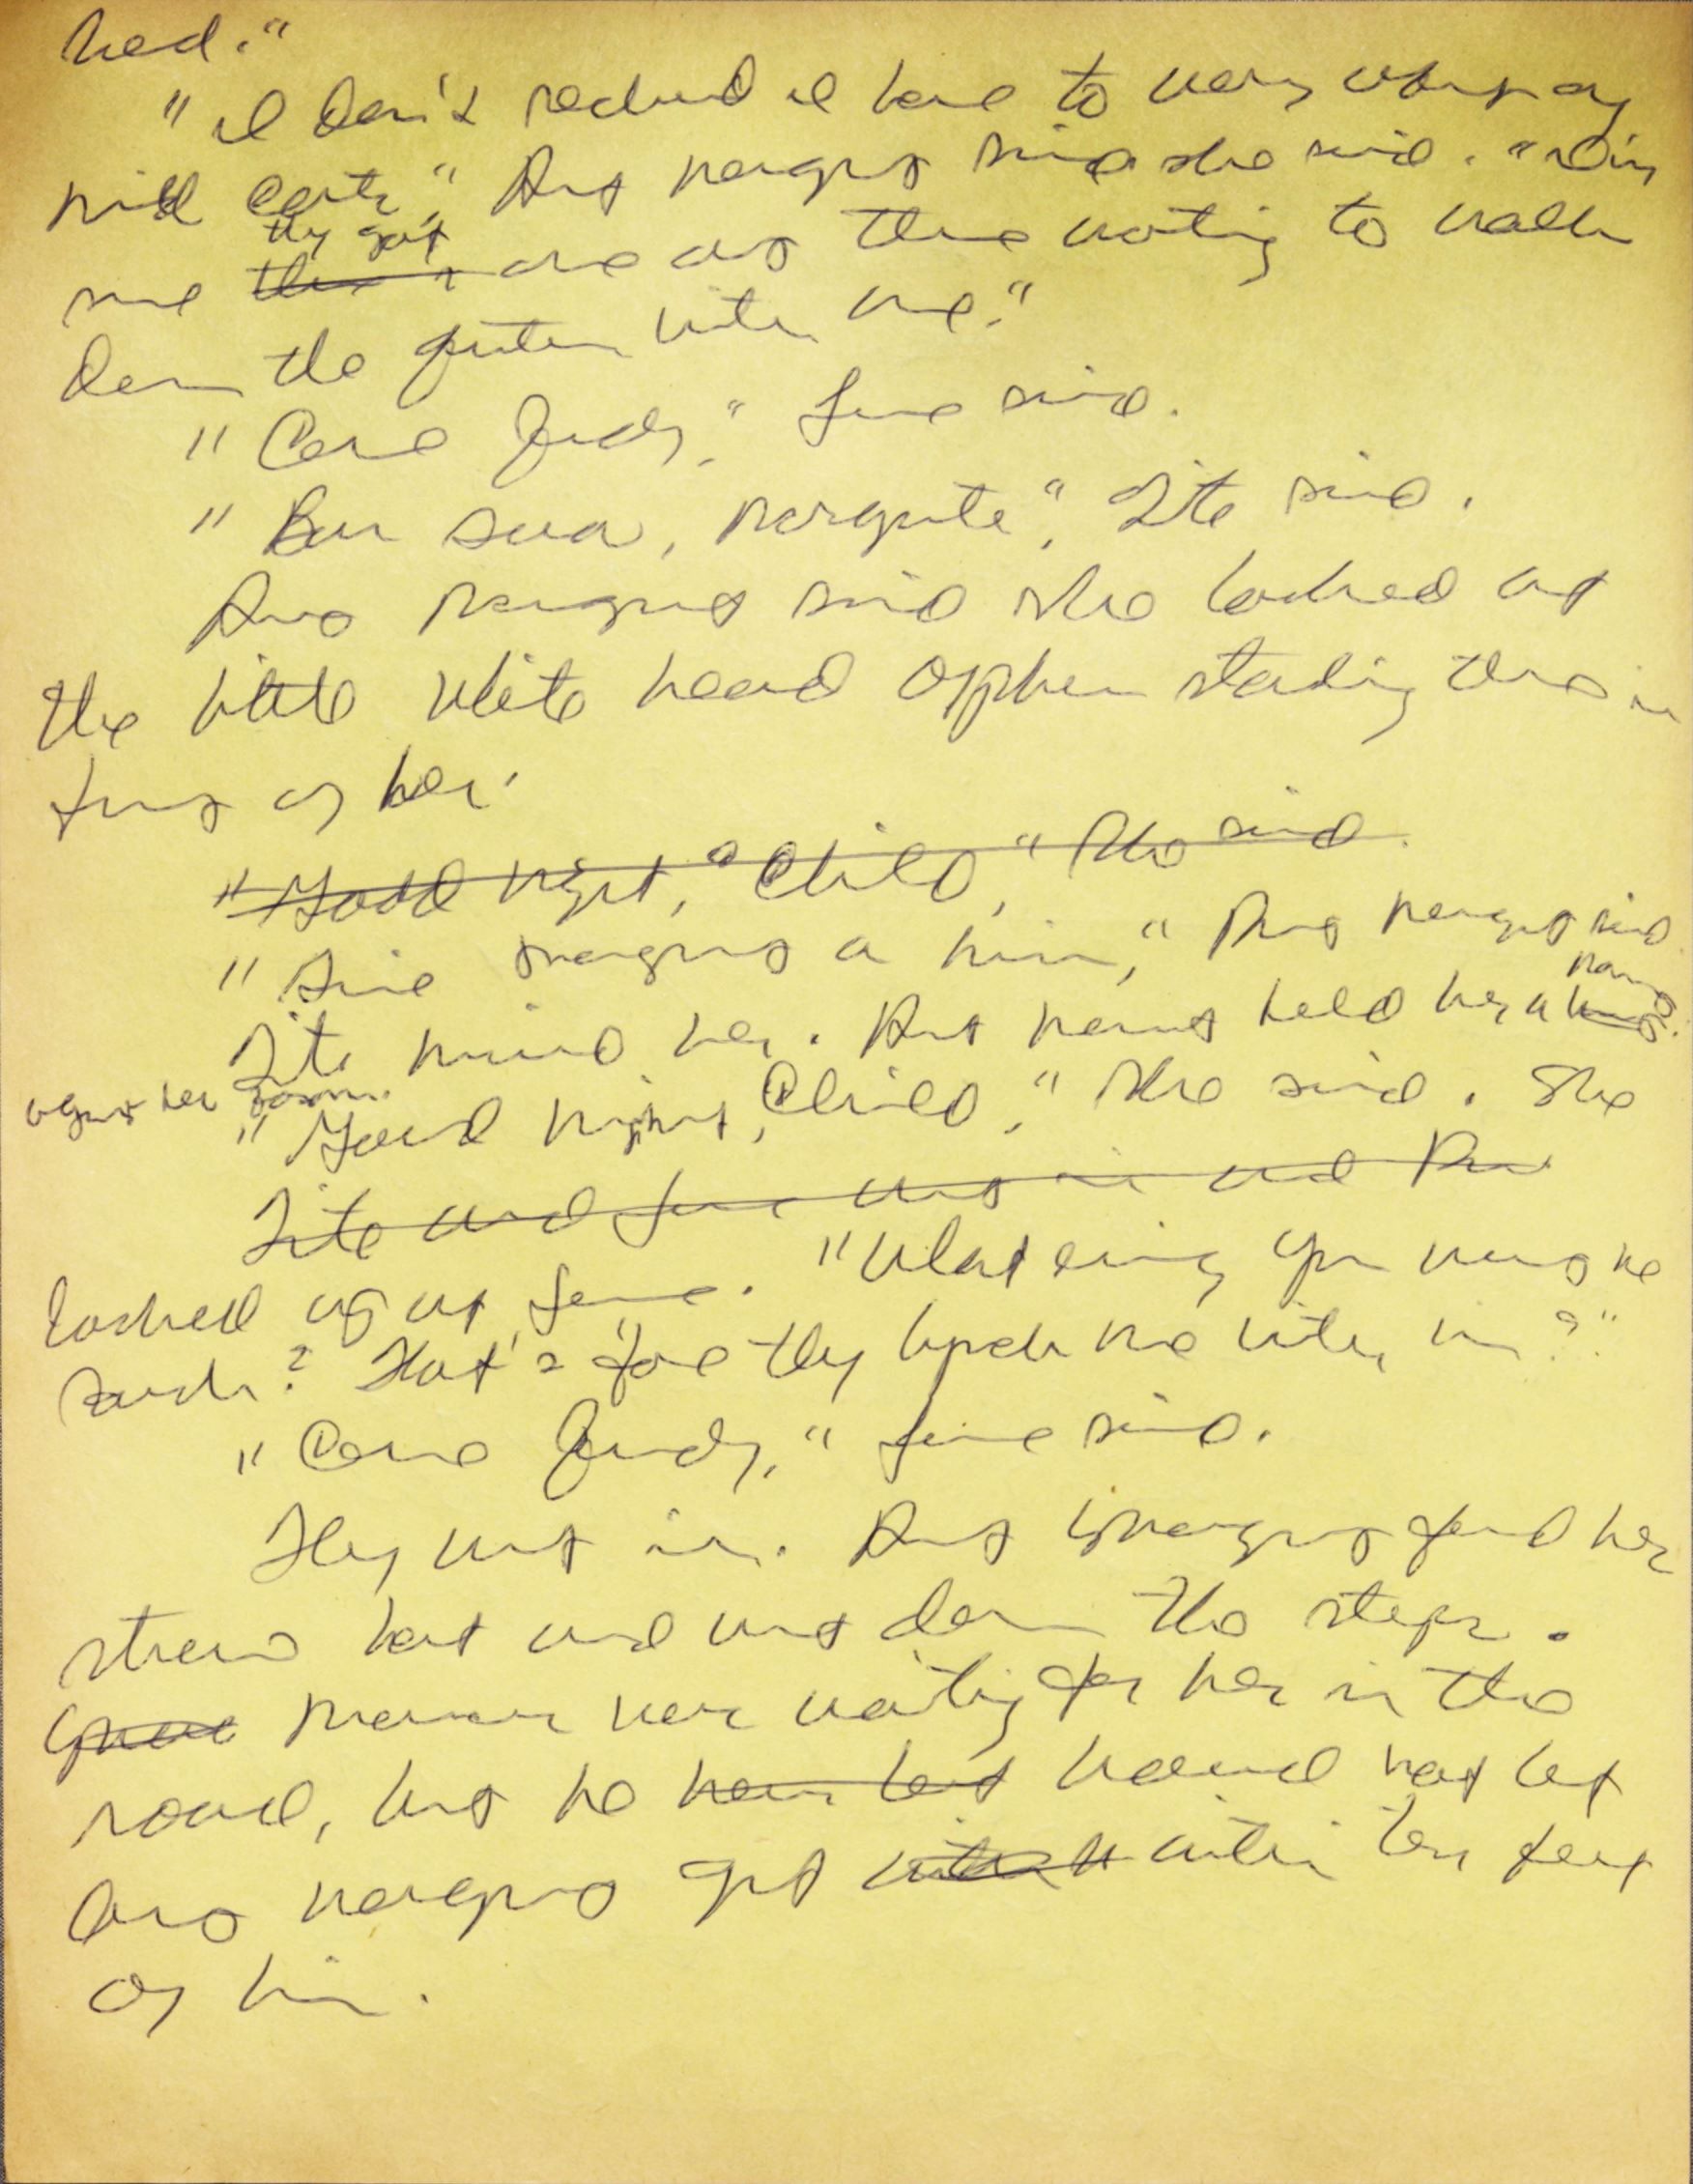 bed."
"I don't reckon I have to worry about any
carts," Aunt Margret said she said. "I'm
sure they got one out there waiting to walk
down the quarter with me."
"Come Judy," said.
"Bon soir, Margrite," Tite said.
Aunt Margret said she looked at
the little white head orphan standing there in
front of her.
"Good night, Child," she said.
"Give Margret a kiss," Aunt Margret said
Tite kissed her. Aunt Margret held her a long
against her bosom.
"Good night, Child," she said. She
Tite and went in and Aunt
looked up at. "What you
? That's 'fore they lynch me with him?"
"Come Judy," said.
They went in. Aunt Margret found her
straw hat and went down the steps.
Marcus were waiting for her in the
road, but he would not let
Aunt Margret get within ten feet
of him.